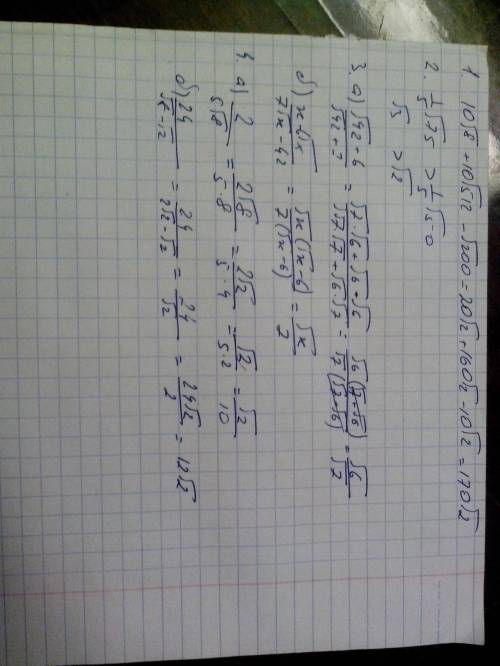 1. 10√8 + 10√512 - √200 = 20√2 + 160√2 - 10√2 = 170√2
2. 1/5 √75 > 1/5 √50
√3 > √2
3. a) (√42 + 6)/(√42 + 7) = (√7·√6 + √6·√6)/(√7·√7 + √6·√7) = √6(√7+√6)/√7(√7+√6) = √6/√7
б) (x - 6√x)/(7√x - 42) = √x(√x - 6)/7(√x - 6) = √x/7
4. a) 2/5√8 = 2√8/5·8 = 2√2/5·4 = √2/5·2 = √2/10
б) 24/(√8 - √2) = 24/(2√2 - √2) = 24/√2 = 24√2/2 = 12√2